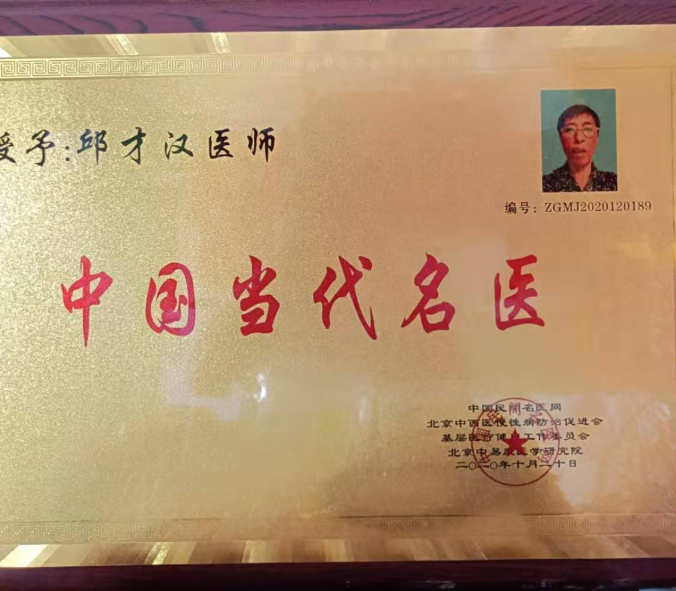 授予:邱才汉医师
编号：ZGMJ2020120189
中国当代名医
中国民间名医网
北京中西医慢性病防治促进会
基层医疗健 工作委员会
北京中易康医学研究院
二〇二〇年十月二十日